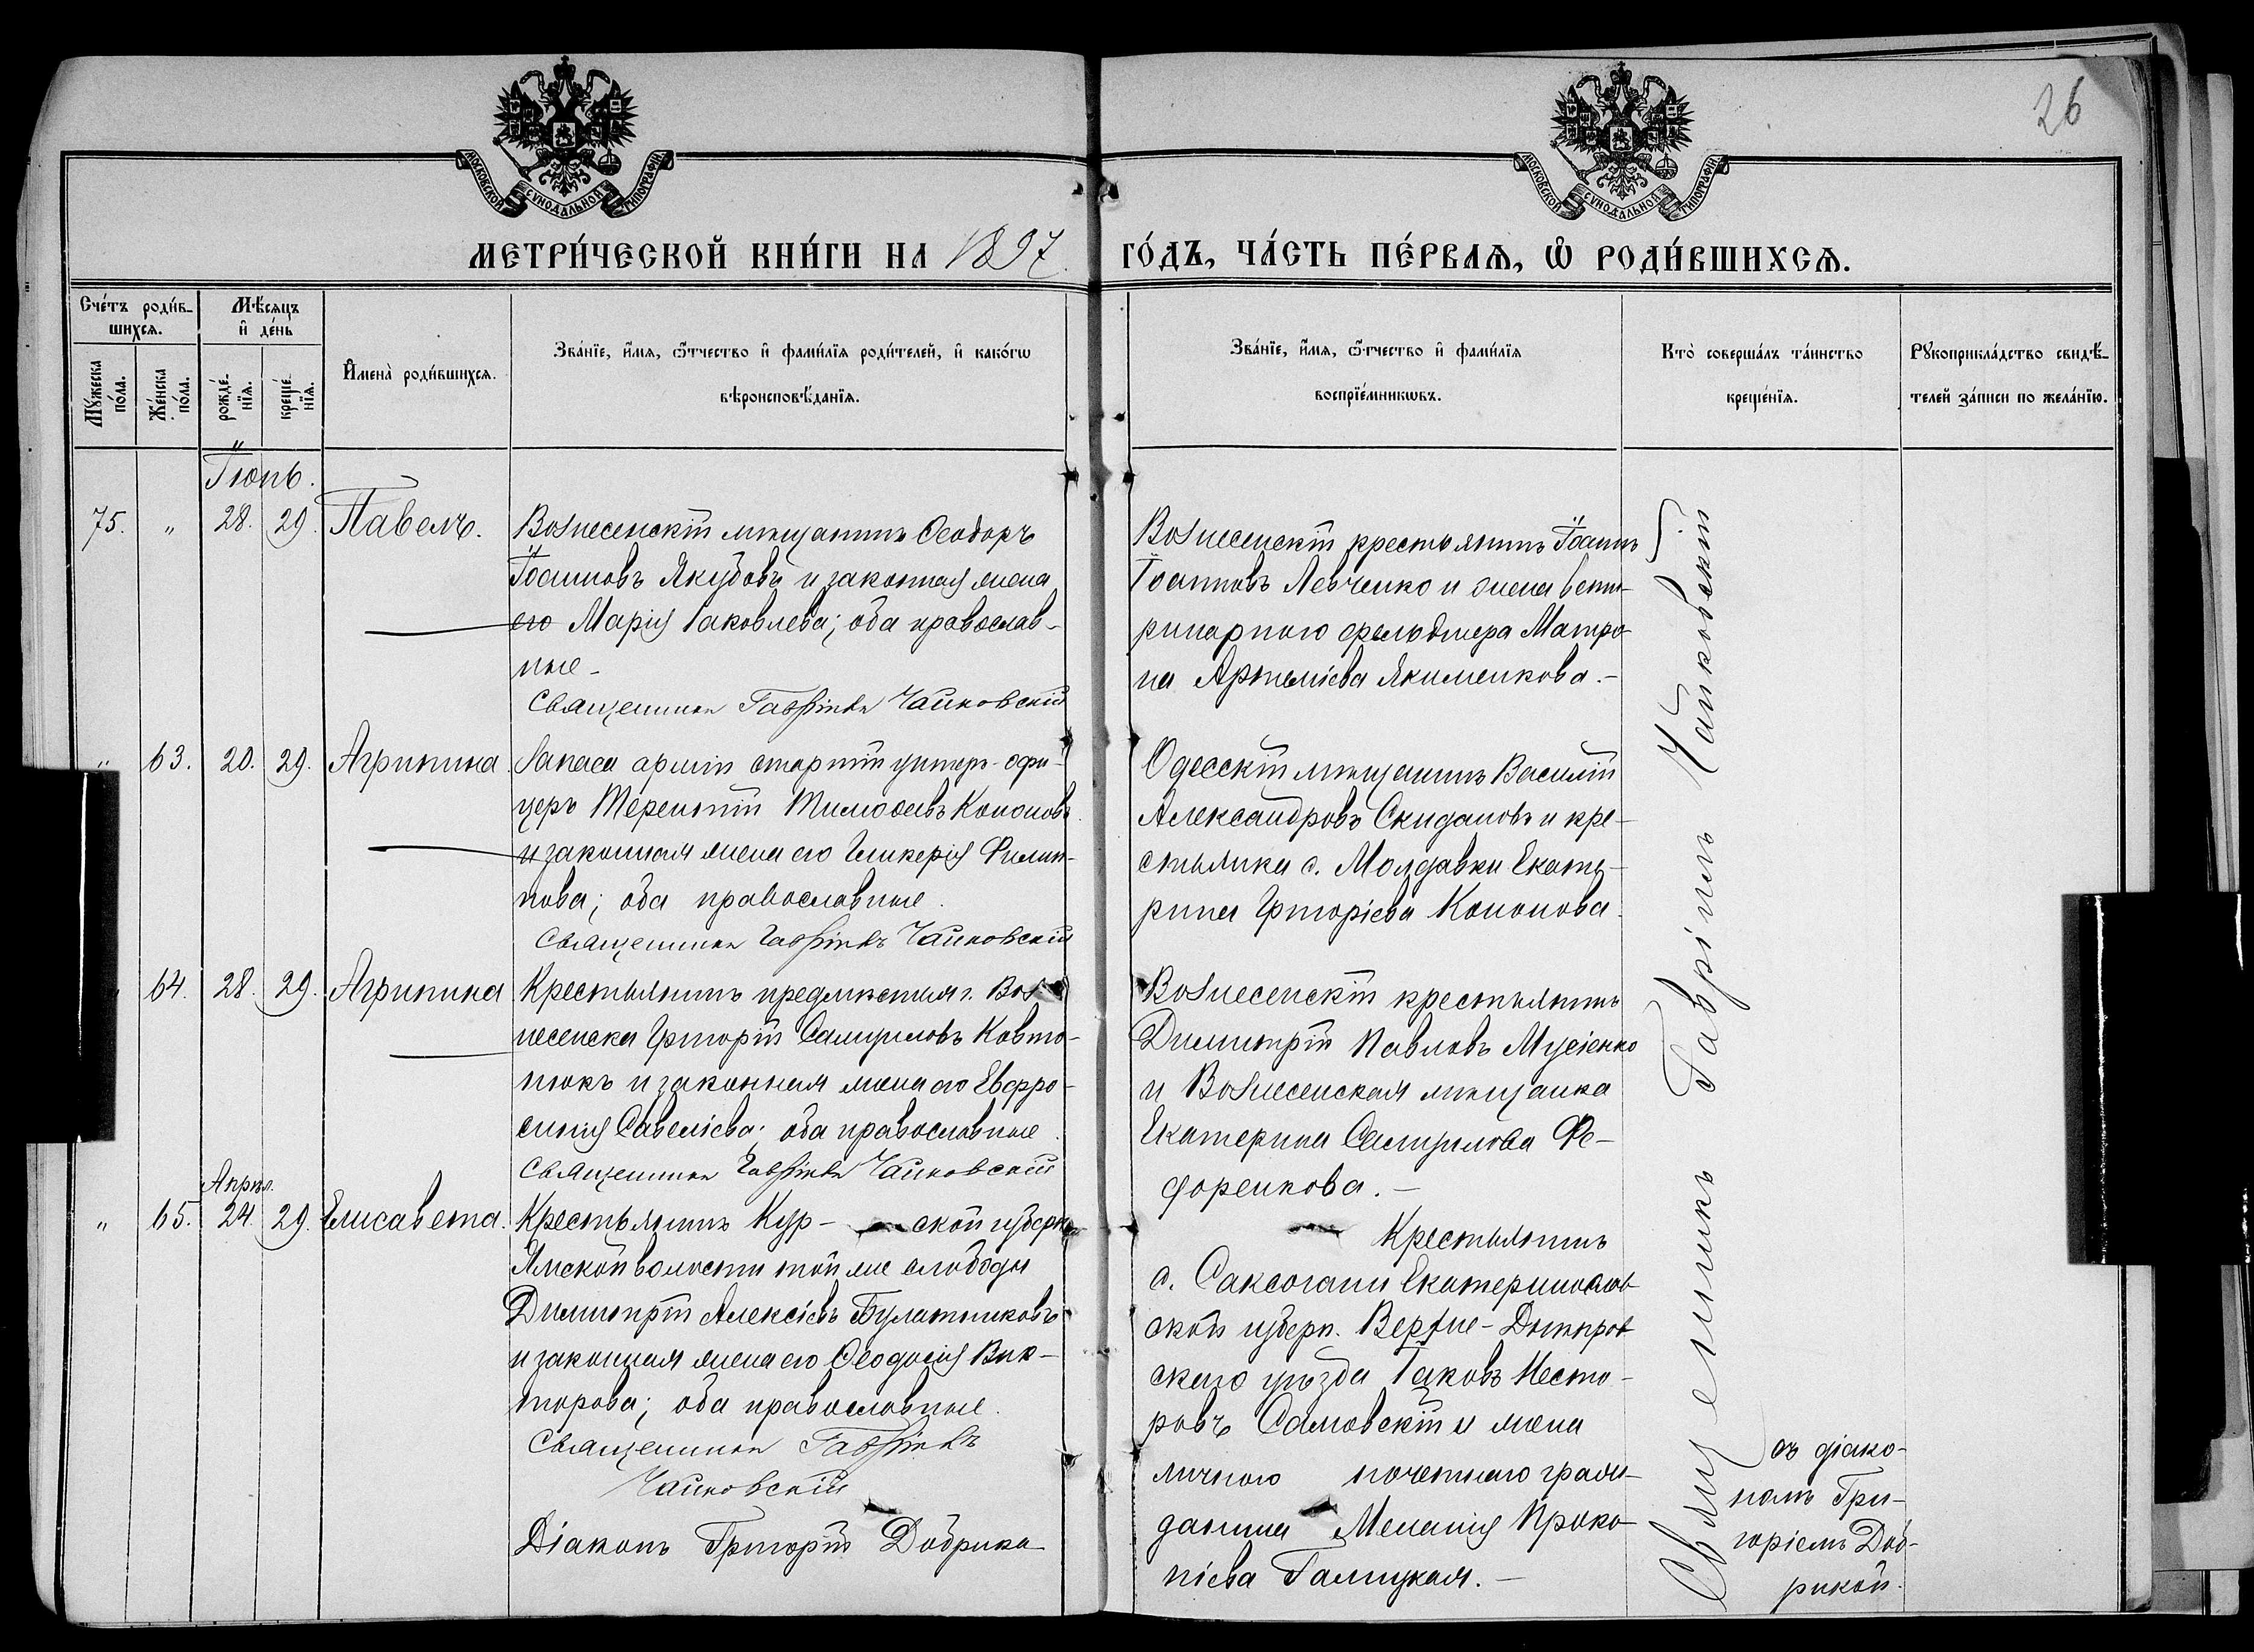 26
МОСКОВСКОЙ СѴНОДАЛЬНОЙ ТИПОГРАФІИ
МОСКОВСКОЙ СѴНОДАЛЬНОЙ ТИПОГРАФІИ
МЕТРИ́ЧЕСКОЙ КНИ́ГИ НА 1897
ГО́ДЪ, ЧА́СТЬ ПЕ́РВАЯ, Ѡ РОДИ́ВШИХСЯ.
Сче́тъ роди́в-
шихся.
Мꙋ́жеска по́ла.
Же́нска по́ла.
Мѣ́сяцъ
и де́нь
рожде́-
нїя.
креще́-
нїя.
Имена̀ роди́вшихся.
Зва́нїе, и́мя, ѻ҆́тчество и фами́лїя роди́телей, и како́гѡ
вѣроисповѣ́данїя.
Зва́нїе, и́мя, ѻ҆́тчество и фами́лїя
воспрїе́мникѡвъ.
Кто̀ соверша́лъ та́инство
креще́нїя.
Рꙋкоприкла́дство свидѣ́-
телей за́писи по жела́нїю.
Іюнь.
75. " 28. 29. Павелъ.
Вознесенскій мѣщанинъ Ѳеодоръ
Іоанновъ Якубовъ и законная жена
его Марія Іаковлева; оба православ-
ные -
Священникъ Гавріилъ Чайковскій
Вознесенскій крестьянинъ Іоаннъ
Іоанновъ Левченко и жена вети-
ринарного фельдшера Матро-
на Артеміева Якименкова. -
" 63. 20. 29. Агрипина.
Запаса арміи старшій унтеръ-офи-
церъ Терентій Тимоѳеевъ Кононовъ
и законная жена его Гликерія Филип-
пова; оба православные.
Священникъ Гавріилъ Чайковскій
Одесскій мѣщанинъ Василій
Александровъ Скидановъ и кре-
стьянка с. Молдавки Екате-
рина Григоріева Кононова.
64. 28. 29. Агрипина
Крестьянинъ предмѣстья г. Воз-
несенска Григорій Самуиловъ Ковто-
нюкъ и законная жена его Евфро-
синія Савеліева; оба православные.
Священникъ Гавріилъ Чайковскій
Вознесенскій крестьянинъ
Димитрій Павловъ Мусіенко
и Вознесенская мѣщанка
Екатерина Самуилова Фе-
доренкова. -
Апрѣл.
" 65. 24. 29. Елисавета.
Крестьянинъ Кур- ской губерн.
Ямской волости той же слободы
Димитрій Алексіевъ Булатниковъ
и законная жена его Ѳеодосія Вик-
торова; оба православные.
Священникъ Гавріилъ
Чайковскій
Діаконъ Григорій Добрика
Крестьянинъ
с. Саксогани Екатеринослав-
ской губерн. Верхне-Днѣпров-
скаго уѣзда Іаковъ Несто-
ровъ Самовскій и жена
личного почетнаго граж-
данина Меланія Проко-
піева Галицкая. -
Священникъ Гавріилъ Чайковскій
съ діако-
номъ Гри-
горіемъ Доб-
рикой.